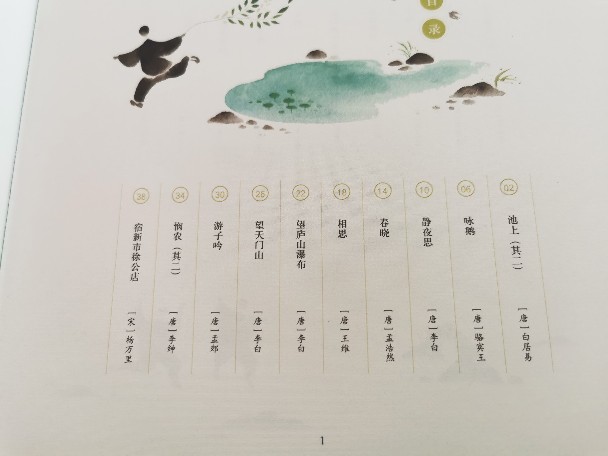 目录
02
池上（其二）
［唐］白居易
06
咏鹅
［唐］骆宾王
10
静夜思
［唐］李白
14
春晓
［唐］孟浩然
18
相思
［唐］王维
22
望庐山瀑布
［唐］李白
26
望天门山
［唐］李白
30
游子吟
［唐］孟郊
34
悯农（其二）
［唐］李绅
38
宿新市徐公店
［宋］杨万里
1